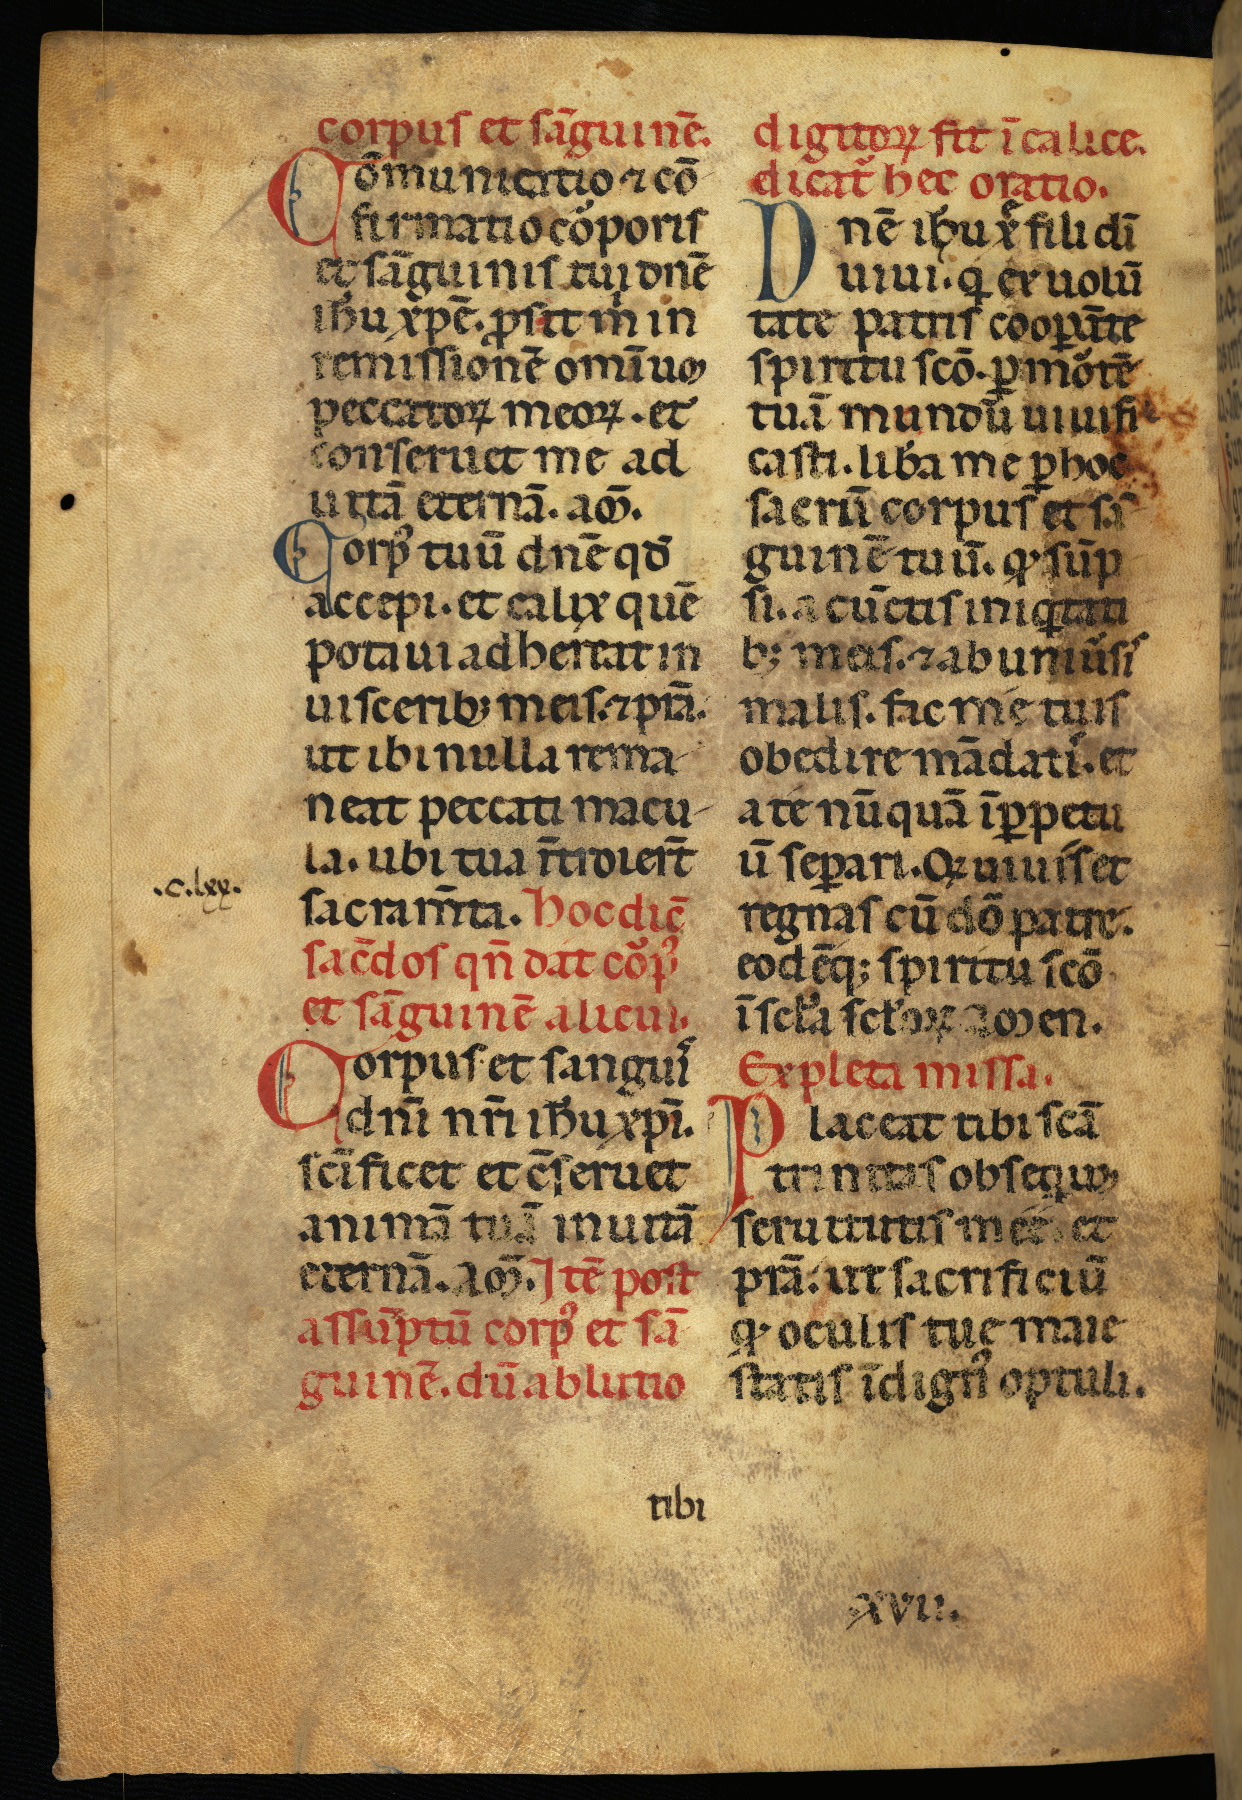 corpus et sãguinẽ.
Cõmunicatio ⁊ cõ
firmatio coꝛporis
et sãguinis tui dnẽ
ihu xpẽ. ꝓsit m̃ in
remissionẽ omĩuꝫ
peccatoꝝ meoꝝ. et
conseruet me ad
uitã eternã. am̃.
Corpꝰ tuũ dnẽ qď
accepi. et calix quẽ
potaui adhereat in
uisceribꝫ meis. ⁊ prã.
ut ibi nulla rema
neat peccati macu
la. ubi tua ĩtroiert̃
sacram̃ta. Hoc dic̃
sac̃dos qñ dat coꝛpꝰ
et sãguinẽ alicui.
Corpus et sanguiˢ
dñi nr̃i ihu xpĩ.
scĩficet et c̃seruet
animã tuã in uitã
eternã. am̃. Itẽ post
assũptũ corpꝰ et sã
guinẽ. dũ ablutio
digitoꝝ fit ĩ calice.
dicat̃ hec oratio.
Dnẽ ihu xp̃ fili dĩ
uiui. q̇ ex uolũ
tate patris cooꝑãte
spiritu scõ. ꝑ moꝛtẽ
tuã mundũ uiuifi
casti. liƀa me ꝑ hoc
sacrũ corpus et sã
guinẽ tuũ. qᵈ sũp
si. a cũctis iniqͥtati
bꝫ meis. ⁊ ab uniũsiˢ
malis. fac me tuis
obedire mãdatiˢ. et
a te nũquã ĩꝑpetu
ũ seꝑari. Qͥ uiuis et
regnas cũ dõ patre.
eodẽqꝫ spiritu scõ
ĩ scľa scľoꝝ amen.
Expleta missa.
Placeat tibi scã
trinitas obsequiũ
seruitutis mee. et
prã. ut sacrificiũ
qᵈ oculis tue maie
statis ĩdignꝰ optuli.
.c.lxx.
tibi
XVII.